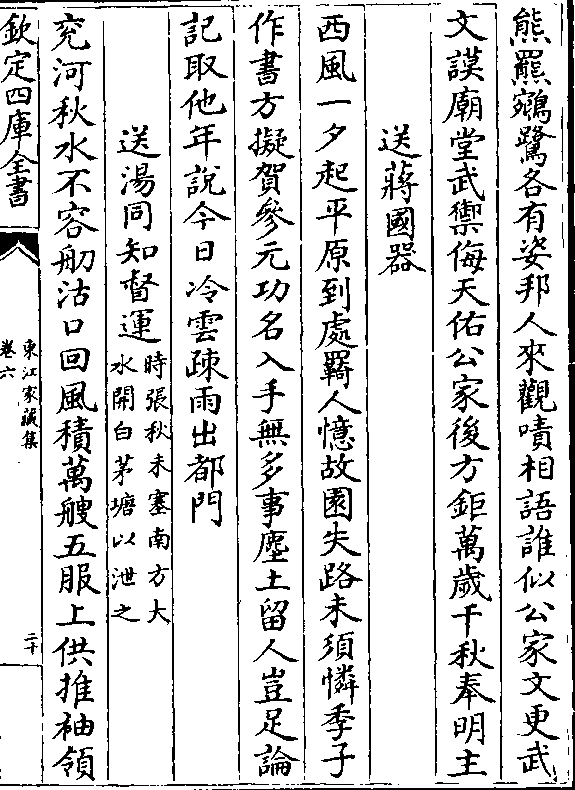 熊羆鵷鷺各有姿邦人來觀嘖相語誰似公家文更武
文謨廟堂武禦侮天佑公家後方鉅萬歲千秋奉明主
送蔣國器
西風一夕起平原到處羇人憶故園失路未須憐季子
作書方擬賀參元功名入手無多事塵土留人豈足論
記取他年說今日冷雲疎雨出都門
送湯同知督運
時張秋未塞南方大
水開白茅塘以泄之
兗河秋水不容舠沽口回風積萬艘五服上供推袖領
欽定四庫全書
東江家藏集
卷六
二十